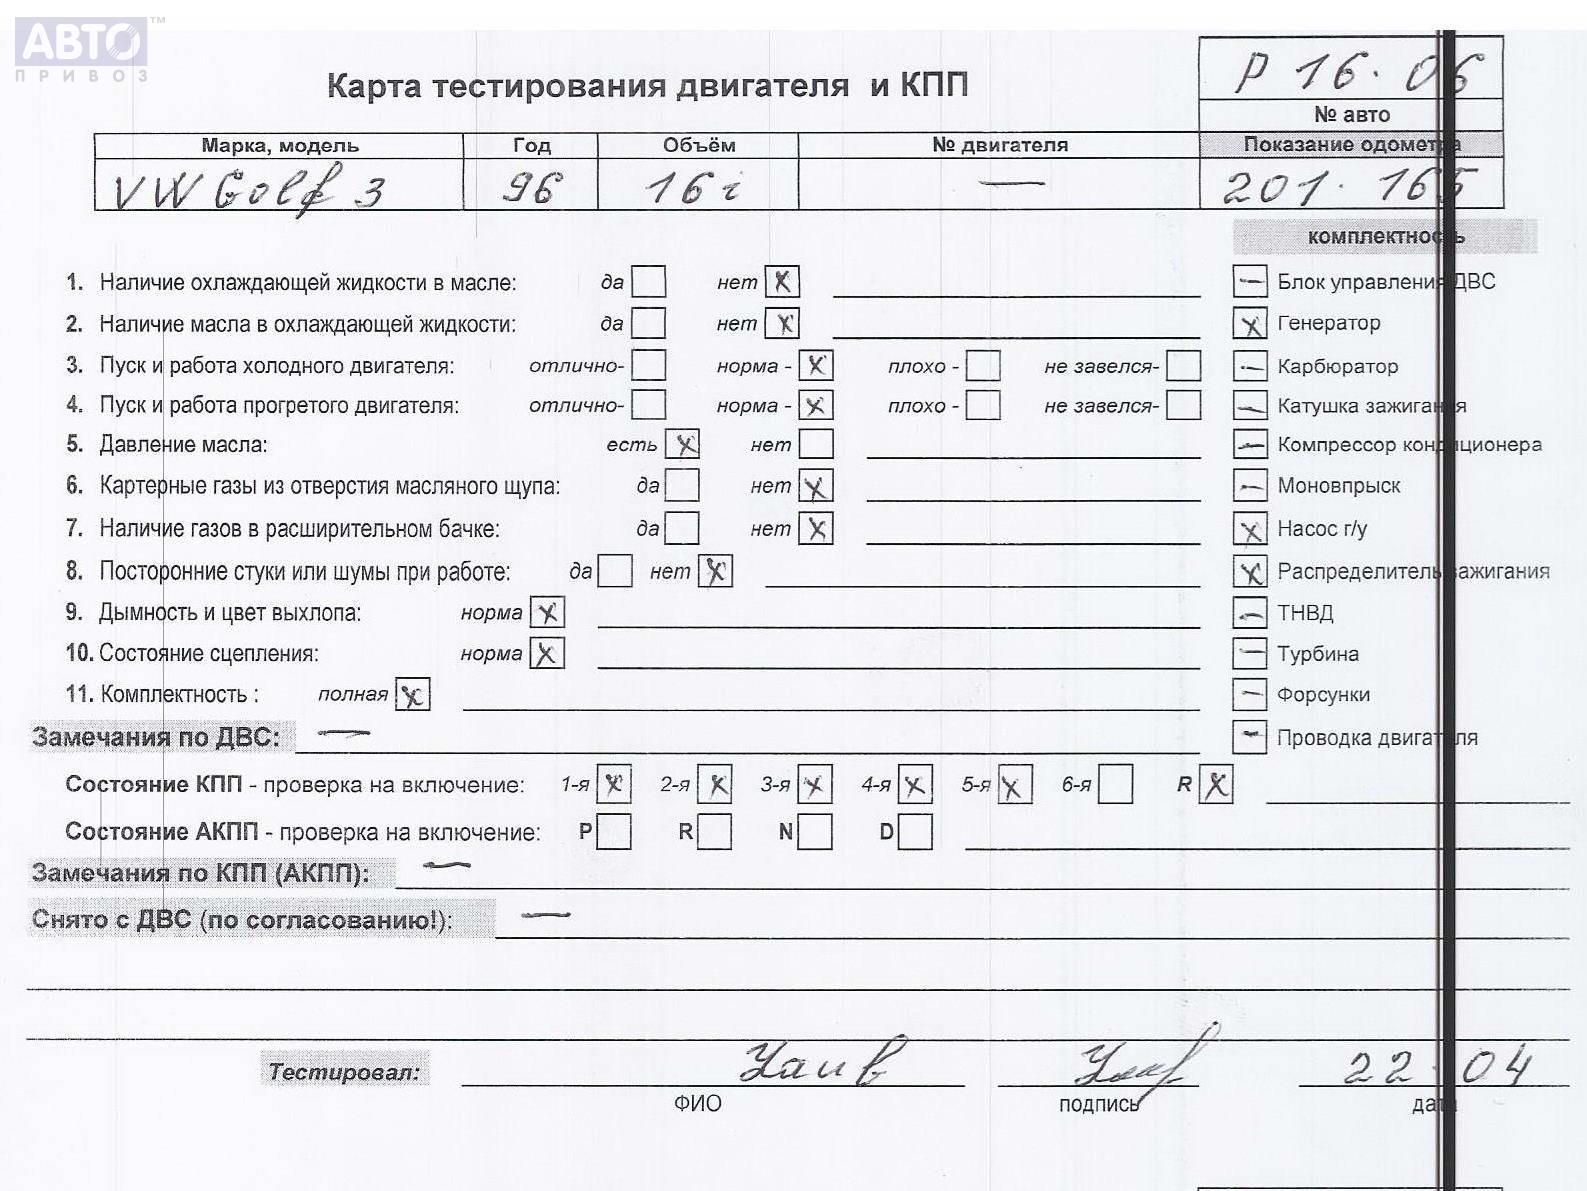 АВТО™
ПРИВОЗ
Карта тестирования двигателя и КПП
Р 16·06
№ авто
Марка, модель Год Объём № двигателя Показание одометра
VW Golf 3 96 16i — 201·165
комплектность
1. Наличие охлаждающей жидкости в масле: да нет x
— Блок управления ДВС
2. Наличие масла в охлаждающей жидкости: да нет x
x Генератор
3. Пуск и работа холодного двигателя: отлично- норма - x плохо - не завелся-
— Карбюратор
4. Пуск и работа прогретого двигателя: отлично- норма - x плохо - не завелся-
— Катушка зажигания
5. Давление масла: есть x нет
— Компрессор кондиционера
6. Картерные газы из отверстия масляного щупа: да нет x
— Моновпрыск
7. Наличие газов в расширительном бачке: да нет x
x Насос г/у
8. Посторонние стуки или шумы при работе: да нет x
x Распределитель зажигания
9. Дымность и цвет выхлопа: норма x
— ТНВД
10. Состояние сцепления: норма x
— Турбина
11. Комплектность : полная x
— Форсунки
Замечания по ДВС: —
— Проводка двигателя
Состояние КПП - проверка на включение: 1-я x 2-я x 3-я x 4-я x 5-я x 6-я R x
Состояние АКПП - проверка на включение: P R N D
Замечания по КПП (АКПП): —
Снято с ДВС (по согласованию!): —
Тестировал: 22·04
ФИО подпись дата